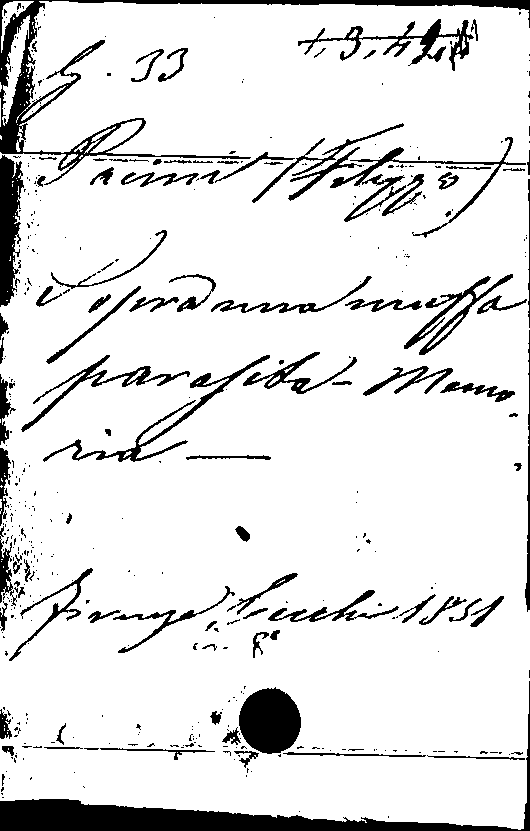 G. 33
Pacini (Filippo)
Sopra una muffa
parassita - Memo-
ria —
Firenze, Cecchi 1851
in 8°